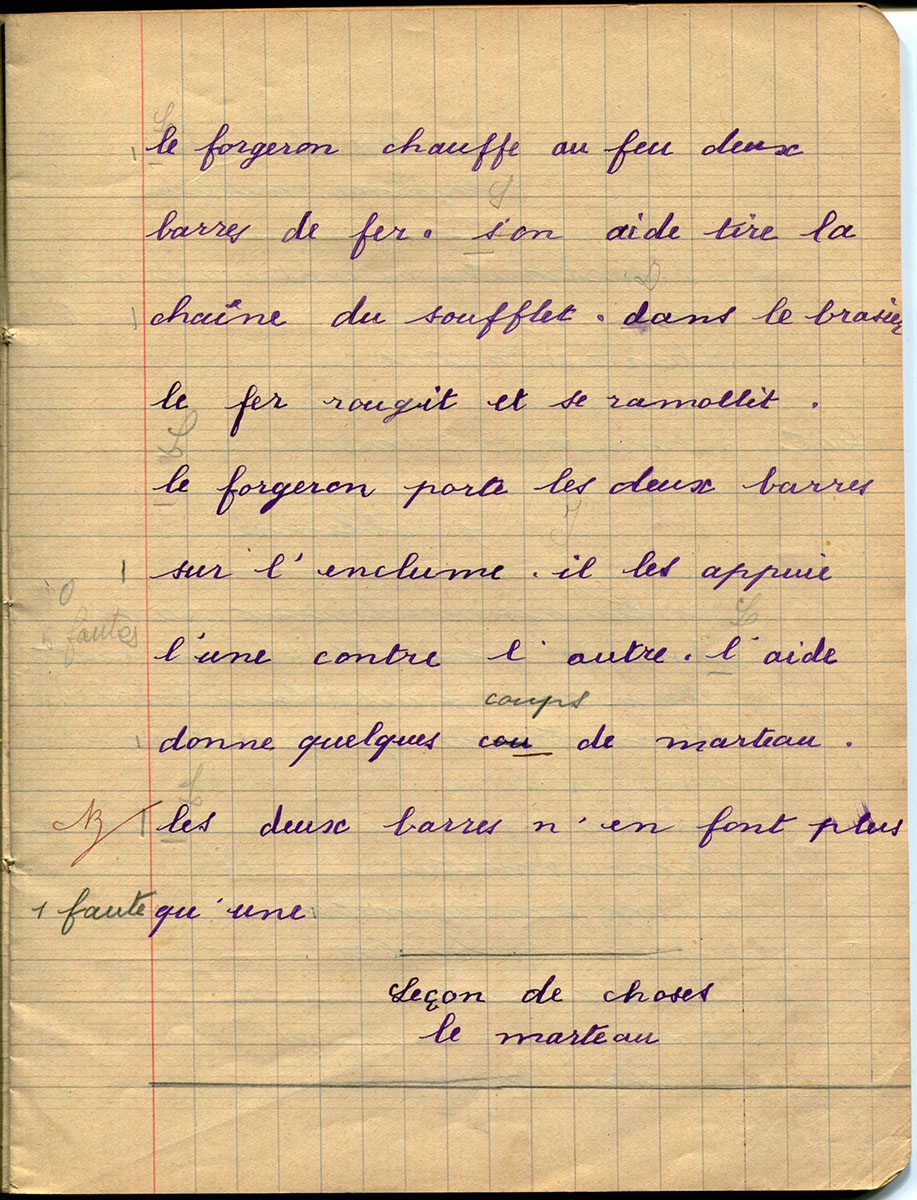 le forgeron chauffe au feu deux
barres de fer. s'on aide tire la
chaîne du soufflet. dans le brasier
le fer rougit et se ramollit.
le forgeron porte les deux barres
sur l'enclume. il les appuie
fautes
l'une contre l'autre. l'aide
coups
donne quelques cou de marteau.
les deux barres n'en font plus
1 faute qu'une
Leçon de choses
le marteau